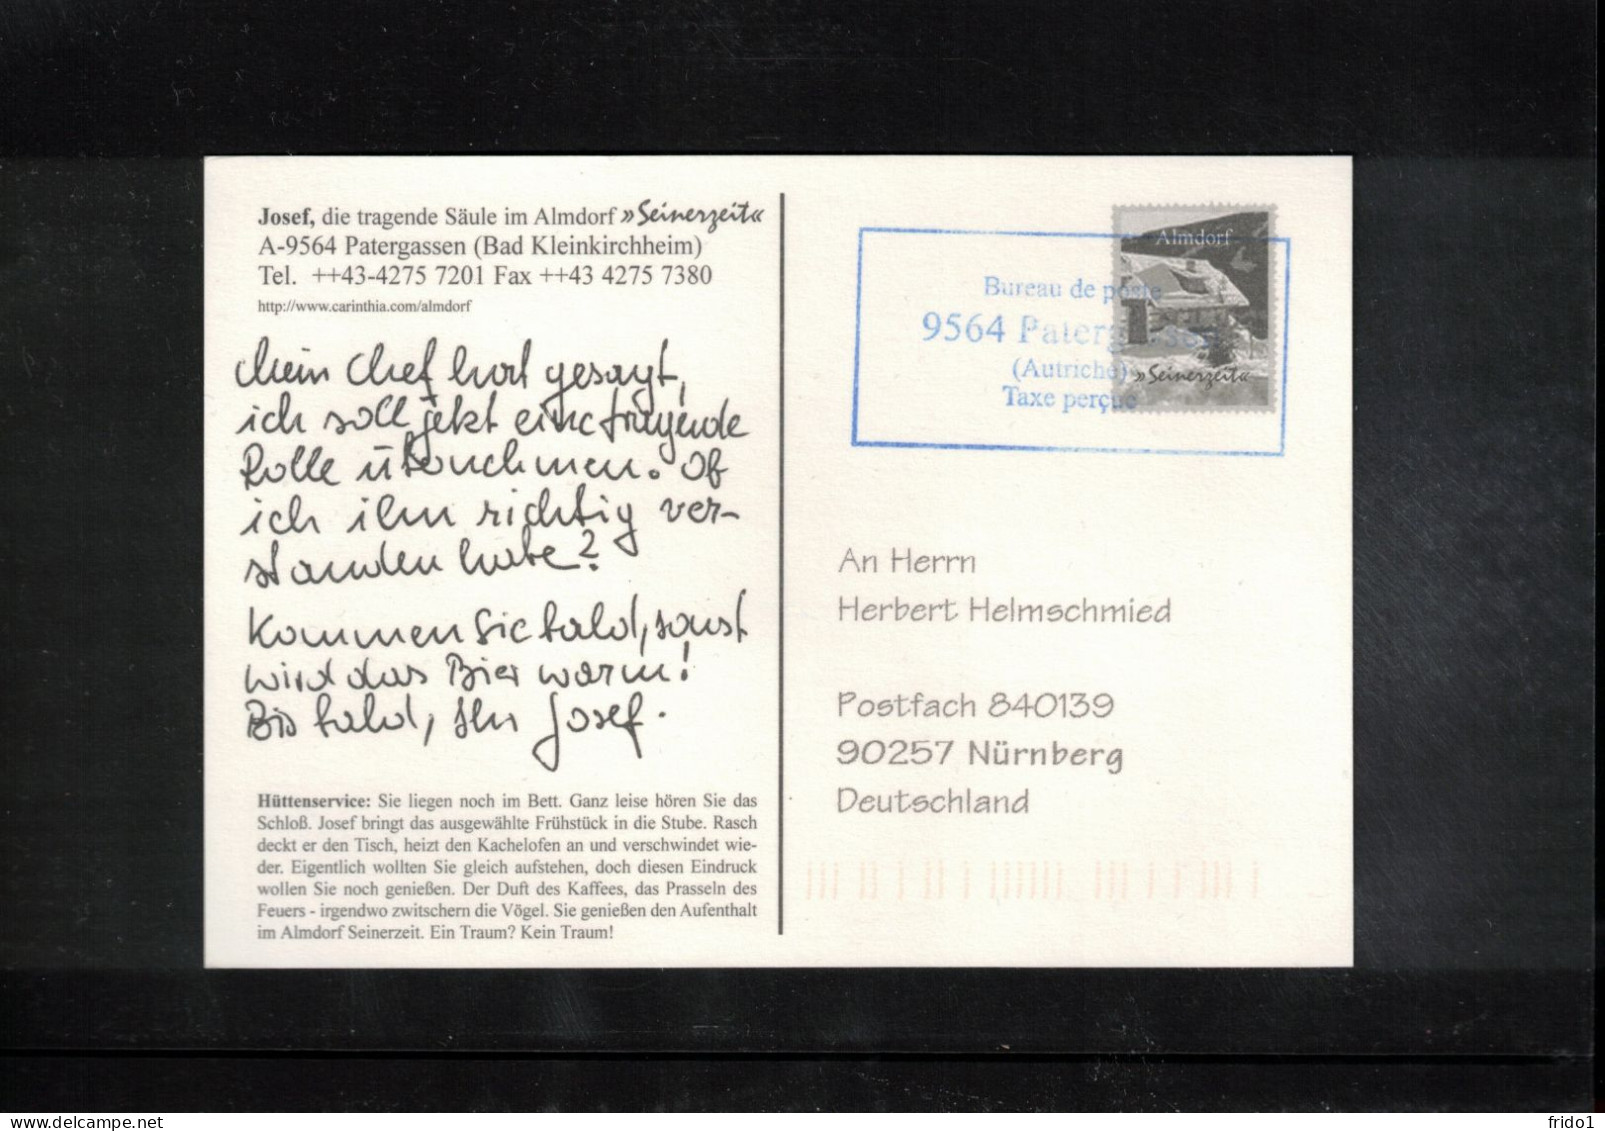 Josef, die tragende Säule im Almdorf »Seinerzeit«
A-9564 Patergassen (Bad Kleinkirchheim)
Tel. ++43-4275 7201 Fax ++43 4275 7380
http://www.carinthia.com/almdorf
Mein Chef hat gesagt,
ich soll jetzt eine tragende
Rolle übernehmen. Ob
ich ihn richtig ver-
standen habe?
Kommen Sie bald, sonst
wird das Bier warm!
Bis bald, Ihr Josef.
Hüttenservice: Sie liegen noch im Bett. Ganz leise hören Sie das
Schloß. Josef bringt das ausgewählte Frühstück in die Stube. Rasch
deckt er den Tisch, heizt den Kachelofen an und verschwindet wie-
der. Eigentlich wollten Sie gleich aufstehen, doch diesen Eindruck
wollen Sie noch genießen. Der Duft des Kaffees, das Prasseln des
Feuers - irgendwo zwitschern die Vögel. Sie genießen den Aufenthalt
im Almdorf Seinerzeit. Ein Traum? Kein Traum!
Almdorf
»Seinerzeit«
Bureau de poste
9564 Patergassen
(Autriche)
Taxe perçue
An Herrn
Herbert Helmschmied
Postfach 840139
90257 Nürnberg
Deutschland
frido1